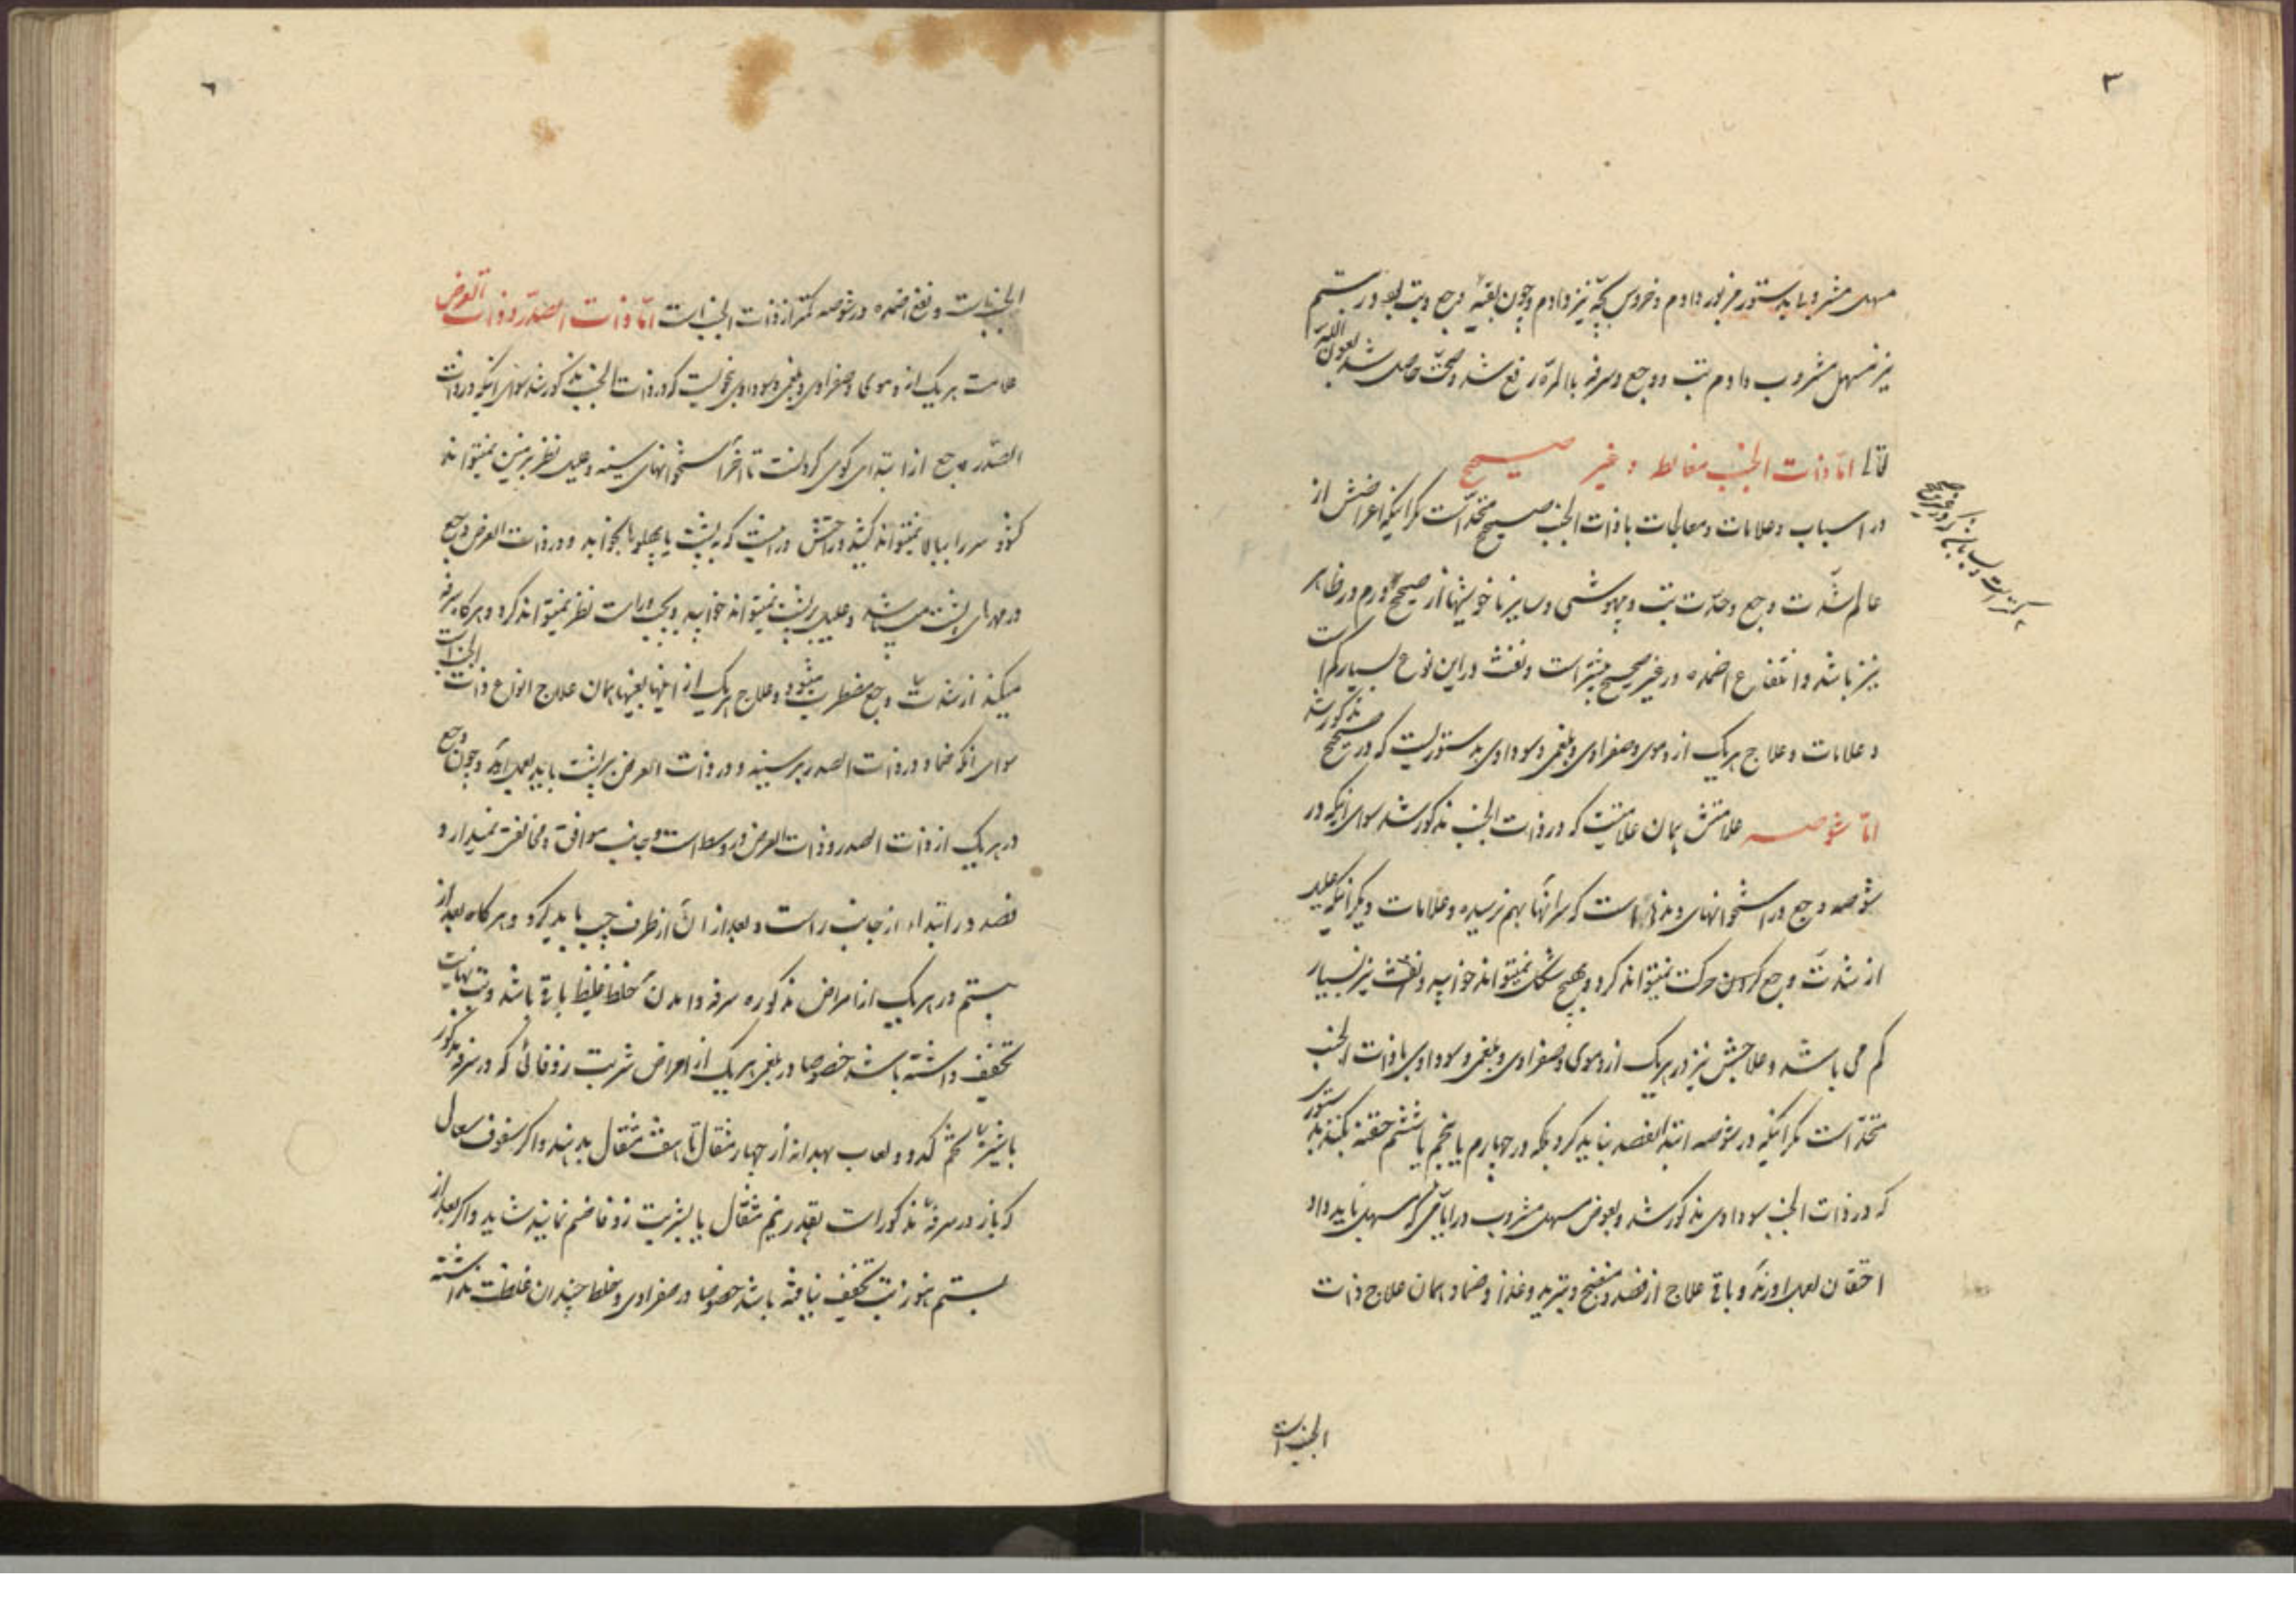 ۳
مسهل مشروب بدستور مزبور دادم و خروس بچه نیز دادم و چون بقیهٔ وجع و تب بود در بیستم
نیز مسهل مشروب دادم تب و وجع و سرفه بالمرّه رفع شد و صحّت حاصل شد بعون اللّه
امّا ذات الجنب مغالط و غیر صحیح
در اسباب و علامات و معالجات با ذات الجنب صحیح متحد است مگر اینکه اعراضش از
شدّت وجع و حدّت تب و بیهوشی و سایر ناخوشیها از صحیح و ورم در ظاهر
نیز باشد و انتفاع اضمده در غیر صحیح بیشتر است و نفث در این نوع بسیار کم است
و علامات و علاج هر یک از دموی و صفراوی و بلغمی و سوداوی بدستوریست که در صحیح مذکور شد
امّا شوصه علامتش همان علامتیست که در ذات الجنب مذکور شد سوای اینکه در
شوصه وجع در استخوانهای دنده‌هاست که سر آنها بهم نرسیده و علامات دیگر اینکه علیل
از شدّت وجع کردن حرکت نمیتواند کرد و بهیچ شکل نمیتواند خوابید و نفث نیز بسیار
کم می باشد و علاجش نیز در هر یک از دموی و صفراوی و بلغمی و سوداوی با ذات الجنب
متحد است مگر اینکه در شوصه ابتدا بفصد نباید کرد بلکه در چهارم یا پنجم یا ششم حقنه بکنند بدستوری
که در ذات الجنب سوداوی مذکور شد و بعوض مسهل مشروب در ایامی که مسهل باید داد
احتقان بعمل اورند و باقی علاج از فصد و منضج و تبرید و غذا و ضماد همان علاج ذات
الجنب است
٦
الجنب است و نفع اضمده در شوصه کمتر از ذات الجنب است امّا ذات الصدر و ذات العرض
علامت هر یک از دموی و صفراوی و بلغمی و سوداوی بنحویست که در ذات الجنب مذکور شد سوای اینکه در ذات
الصدر وجع از ابتدای کوی گردنست تا آخر استخوانهای سینه و علیل نظر بر زمین نمیتواند
کند و سر را ببالا نمیتواند کشید و راحتش در انست که به پشت یا پهلو بخوابد و در ذات العرض وجع
در مهرهای پشت میباشد و علیل بر پشت نمیتواند خوابید و بچپ و راست نظر نمیتواند کرد و هر گاه سرفه
میکند از شدّت وجع مضطرب میشود و علاج هر یک از اینها بعینها همان علاج انواع ذات الجنب است
سوای انکه ضماد در ذات الصدر بر سینه و در ذات العرض بر پشت باید بعمل اید و چون وجع
در هر یک از ذات الصدر و ذات العرض در وسط است و جانب موافق و مخالف نمیدارد
فصد در ابتدا از جانب راست و بعد از ان از طرف چپ باید کرد و هر گاه بعد از
بیستم در هر یک از امراض مذکوره سرفه و امدن خلط غلیظ باقی باشد و تب نهایت
تخفیف داشته باشد خصوصا در بلغمی هر یک از امراض شربت زوفائی که در سرفه مذکور
با شیرهٔ تخم کدو و لعاب بهدانه از چهار مثقال تا هفت مثقال بدهند و اگر سفوف سعال
که باز در سرفه مذکور است بقدر نیم مثقال با شربت زوفا ضم نمایند شاید و اگر بعد از
بیستم هنوز تب تخفیف نیافته باشد خصوصا در صفراوی و خلط چندان غلظت نداشته